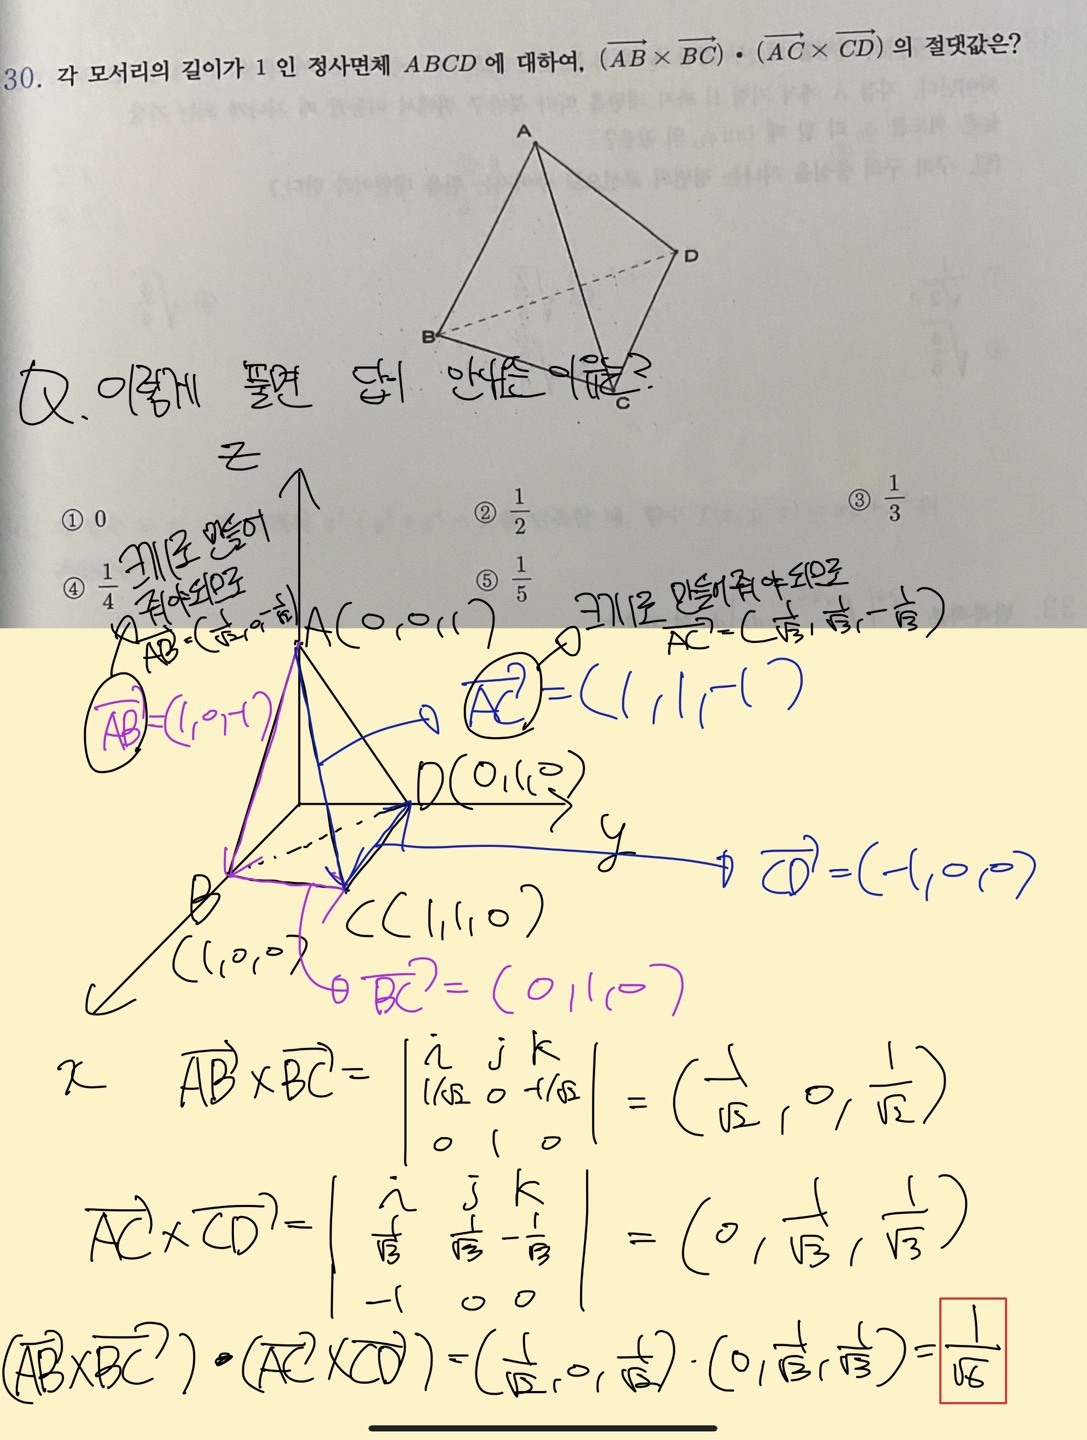 30. 각 모서리의 길이가 1 인 정사면체 ABCD 에 대하여, (AB × BC) • (AC × CD) 의 절댓값은?
A
D
B
C
Q. 이렇게 풀면 답이 안나오는 이유는?
① 0
② 1/2
③ 1/3
④ 1/4
⑤ 1/5
z
크기1로 만들어
줘야되므로
AB=(1/√2, 0, -1/√2)
크기1로 만들어줘야되므로
AC=(1/√3, 1/√3, -1/√3)
A(0,0,1)
AB=(1,0,-1)
AC=(1,1,-1)
D(0,1,0)
y
CD=(-1,0,0)
B
(1,0,0)
C(1,1,0)
BC=(0,1,0)
x
AB×BC= | i j k
1/√2 0 -1/√2
0 1 0 | = (1/√2, 0, 1/√2)
AC×CD= | i j k
1/√3 1/√3 -1/√3
-1 0 0 | = (0, 1/√3, 1/√3)
(AB×BC)•(AC×CD)=(1/√2, 0, 1/√2)·(0, 1/√3, 1/√3)= 1/√6